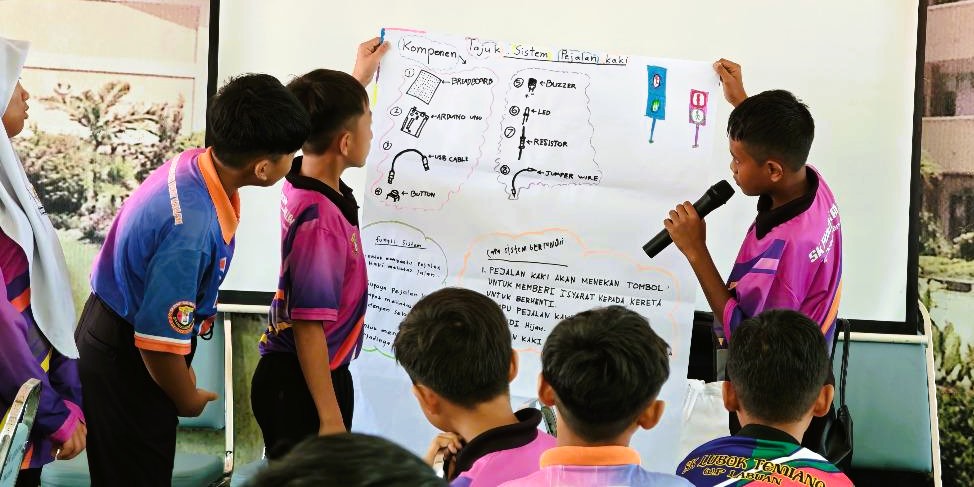 Tajuk : Sistem Pejalan kaki
Komponen
① ← BREADBOARD
② ← ARDUINO UNO
③ ← USB CABLE
④ ← BUTTON
⑤ ← BUZZER
⑥ ← LED
⑦ ← RESISTOR
⑧ ← JUMPER WIRE
fungsi Sistem
Cara sistem berfungsi
1. PEJALAN KAKI AKAN MENEKAN TOMBOL
UNTUK MEMBERI ISYARAT KEPADA KERETA
UNTUK BERHENTI.
PEJALAN
DI Hijau.
KAKI
SK LUBOK TEMIANG
W.P LABUAN